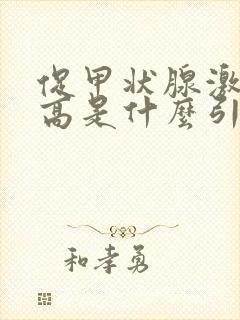 促甲状腺激
高是什麼引
和孝勇